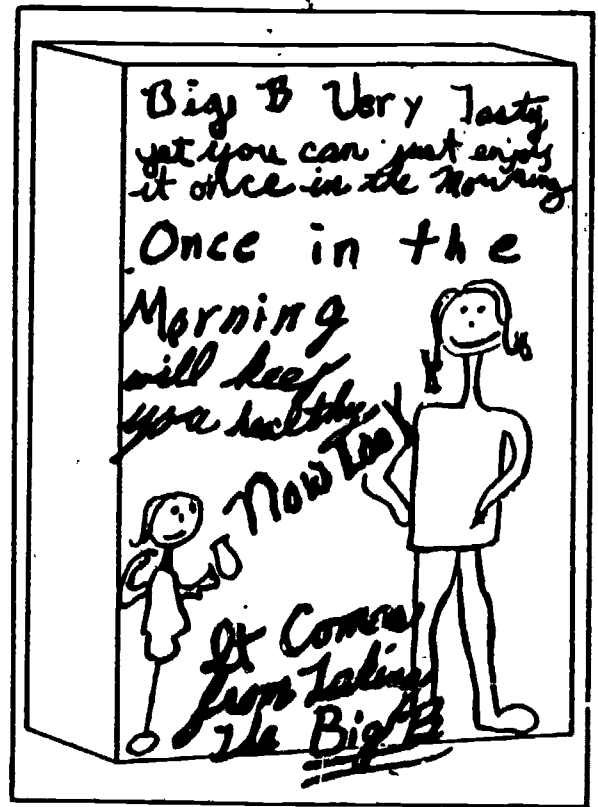 Big B Very Tasty
yet you can just enjoy
it once in the Morning
Once in the
Morning
will keep
you healthy
Now Too
It Comes
from Taking
The Big B